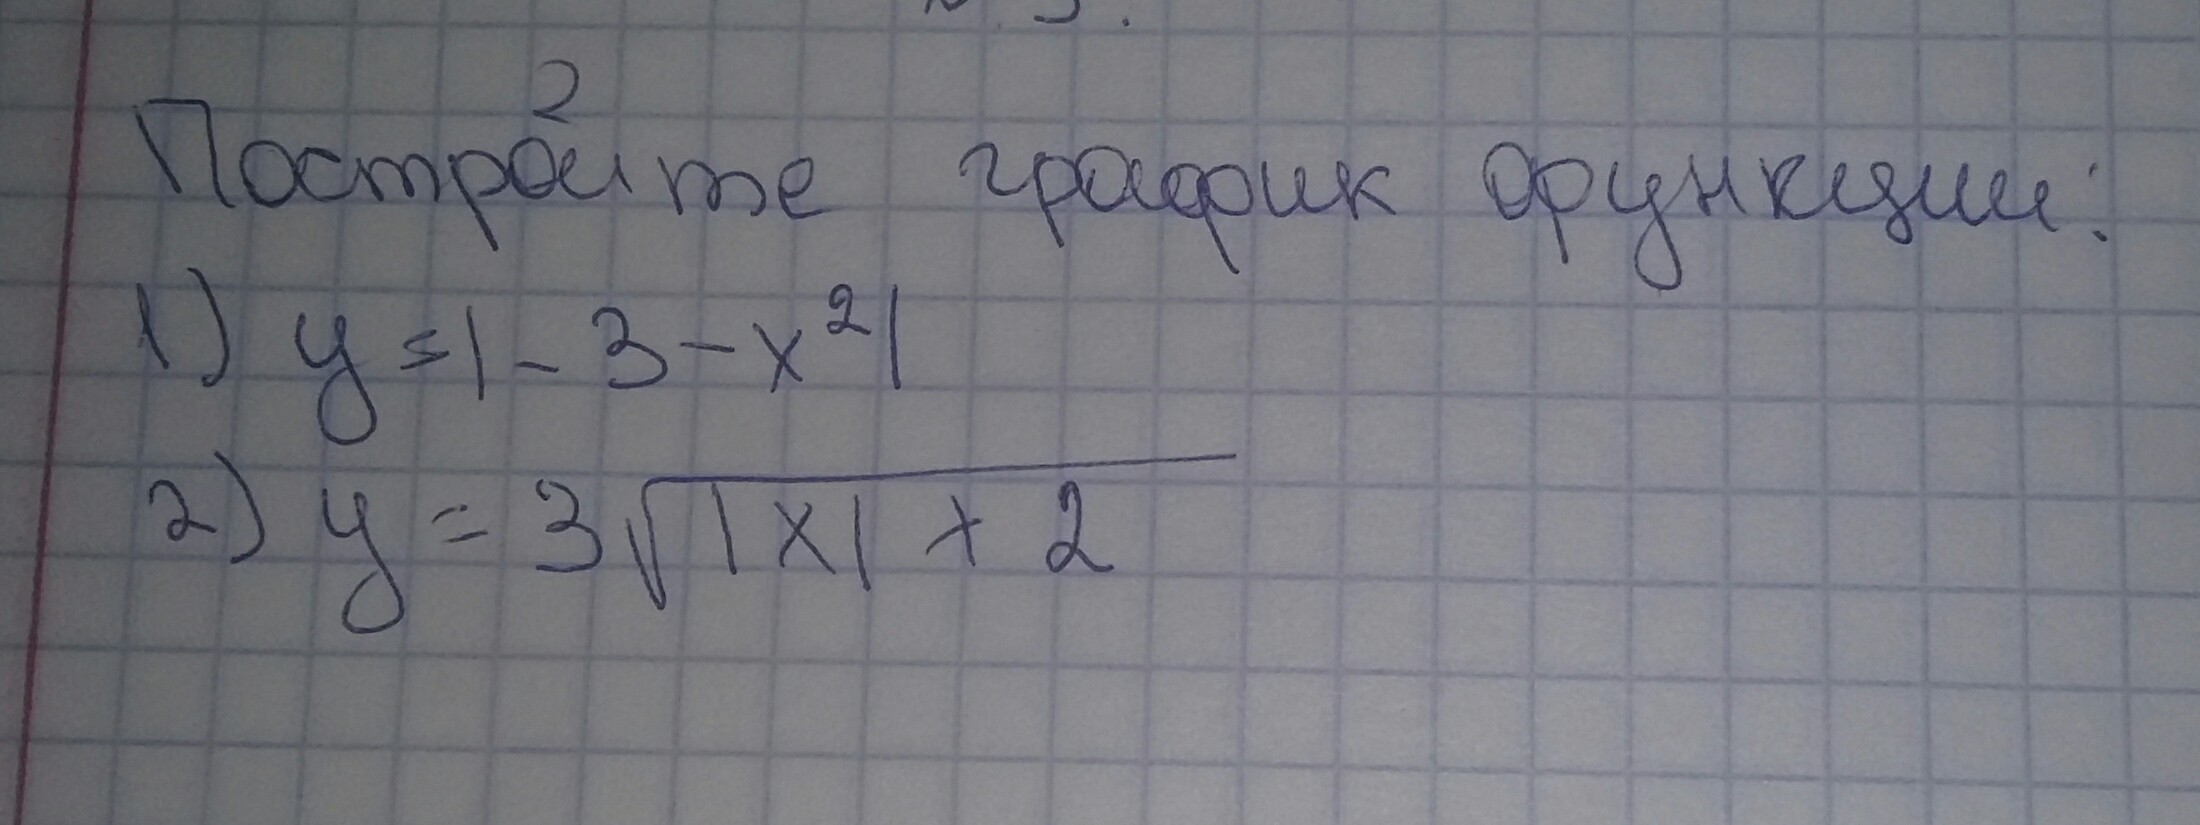 2
Постройте график функции:
1) y = |-3-x²|
2) y = 3√|x| + 2